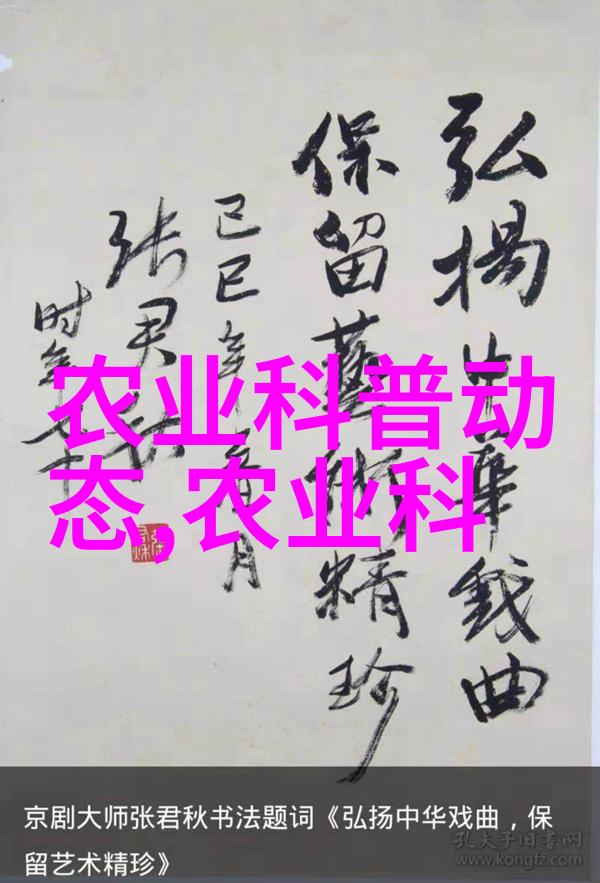 弘揚中華戲曲
保留藝術精珍
己巳年
张君秋
时年七十
农业科普动
态,农业科
京剧大师张君秋书法题词《弘扬中华戏曲，保
留艺术精珍》
孔夫子旧书网
www.kongfz.com